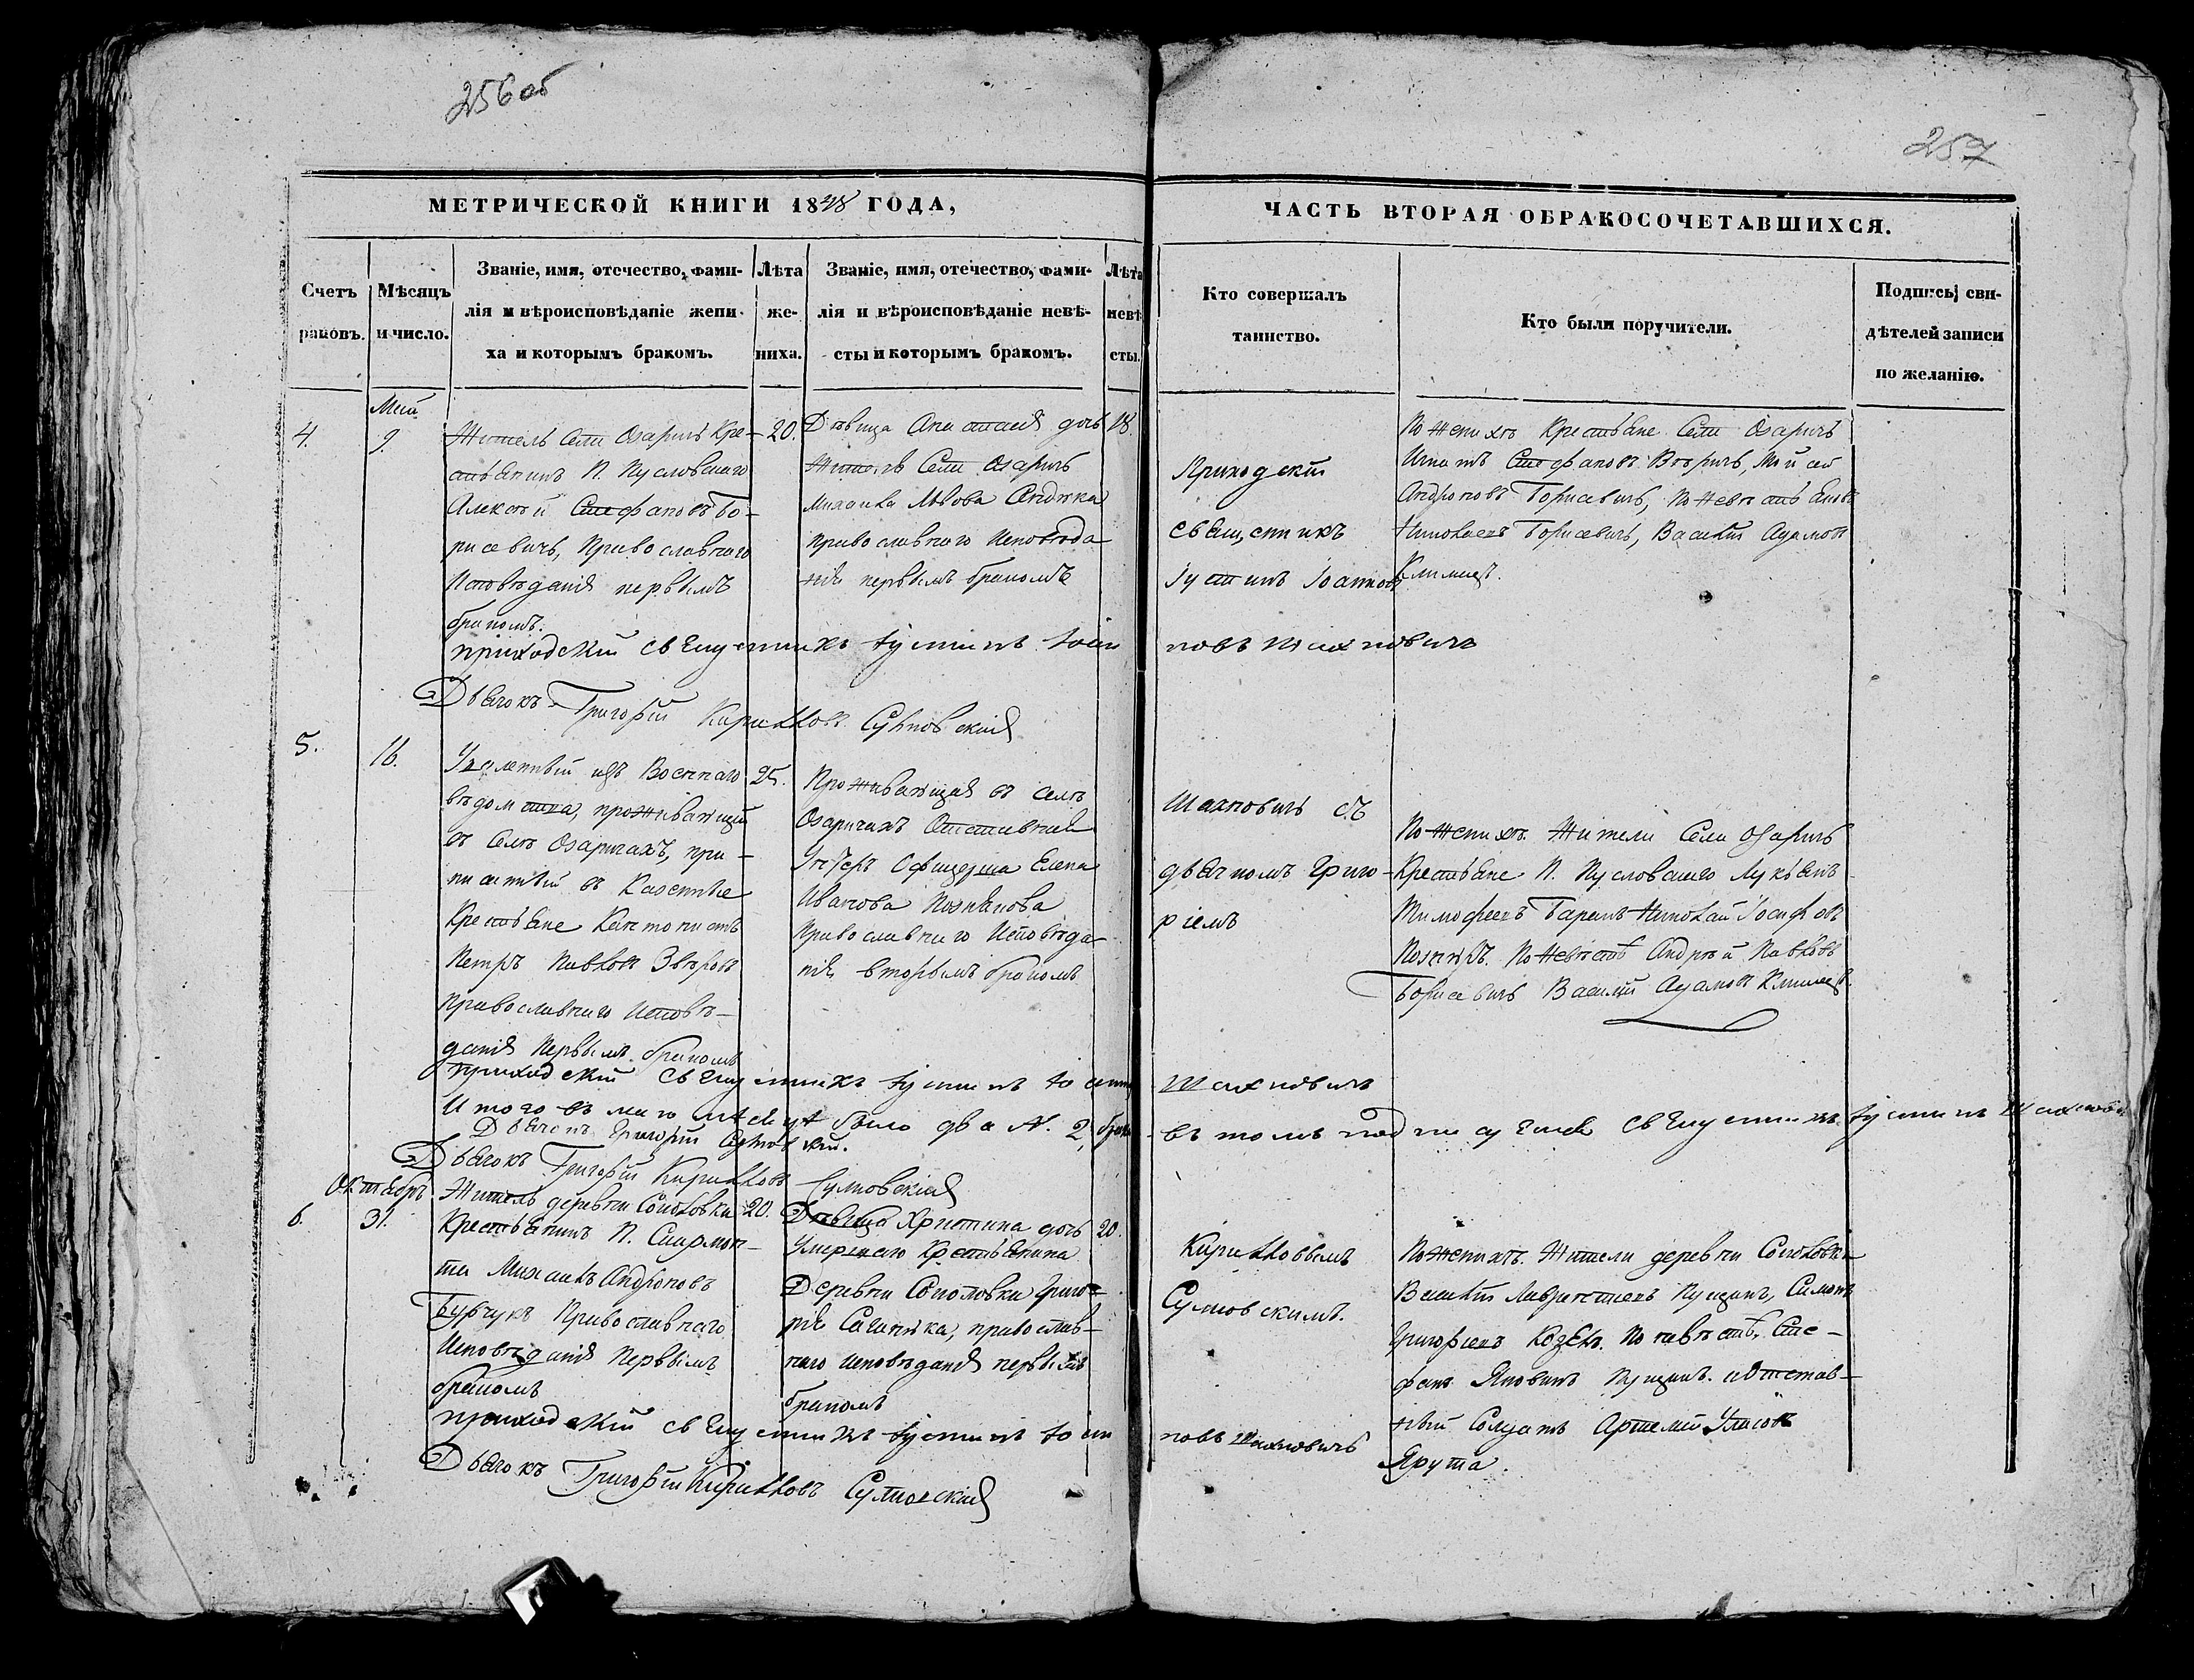 256 об
257
МЕТРИЧЕСКОЙ КНИГИ 18 ГОДА,
ЧАСТЬ ВТОРАЯ ОБРАКОСОЧЕТАВШИХСЯ.
Счетъ
раковъ.
Мѣсяцъ
и число.
Званіе, имя, отечество, фами-
лія и вѣроисповѣданіе жени-
ха и которымъ бракомъ.
Лѣта
же-
ниха.
Званіе, имя, отечество, фами-
лія и вѣроисповѣданіе невѣ-
сты и которымъ бракомъ.
Лѣта
невѣ
сты.
Кто совершалъ
таинство.
Кто были поручители.
Подпись сви-
дѣтелей записи
по желанію.
4.
Маія
9.
Житель Села Озаричъ Кре-
стьянинъ П. Пусловскаго
Алексѣй Стефановъ Бо-
рисевичъ, Православнаго
Исповѣданія первымъ
бракомъ.
20.
Дѣвица Анастасія дочь
Жителя Села Озаричъ
Михаила Львова
православнаго Исповѣда
нія первымъ бракомъ
18.
Приходскій
священникъ
Іустинъ Іоанновъ
По женихѣ Крестьяне Села Озаричъ
Игнатъ Стефановъ Моисей
Андроновъ Борисевичъ, По невѣстѣ
Николаевъ Борисевичъ, Василій Адамовъ
Климчецъ.
приходский священникъ Iустинъ Iоан
новъ Шахновичъ
Дьячокъ Григорій Кирилловъ Сулковскій
5.
16.
Уволенный изъ Военнаго
вѣдомства, проживающій
въ Селѣ Озаричахъ, при-
писанный въ Казенные
Крестьяне Кантонистъ
Петръ Павловъ Звѣровъ
Православнаго Исповѣ-
данія Первымъ бракомъ
25.
Проживающая въ селѣ
Озаричахъ Отставная
Унтеръ Офицерша Елена
Иванова
Православнаго Исповѣда-
нія вторымъ бракомъ
Шахновичъ съ
дьячкомъ Григо-
ріемъ
По Женихѣ Жители Села Озаричъ
Крестьяне П. Пусловскаго Лукьянъ
Тимофеевъ Баранъ Николай Іосифовъ
По Невѣстѣ Андрей Павловъ
Борисевичъ Василій Адамовъ Климчецъ.
приходский священникъ Iустинъ Iоанн
Шахновичъ
Итого въ маго месяцѣ было два N. 2, брака
въ томъ подписуемся Священникъ Iустинъ Шахнович
Дьячекъ Григорій
Дьячокъ Григорій Кирилловъ Сулковскій
Октябрь
6.
31.
Житель деревни Соколовки
Крестьянинъ П. Скирмон-
та Михаилъ Андроновъ
Православнаго
Исповѣданія Первымъ
бракомъ
20.
Дѣвица Христина дочь
Умершаго Крестьянина
Деревни Соколовки Григо-
рія православ-
наго исповѣданія первымъ
бракомъ
20.
Кирилловымъ
Сулковскимъ.
По женихѣ. Жители деревни Соколовки
Василій Лаврентіевъ Симонъ
Григорьевъ По невѣстѣ. Сте-
фанъ и отстав-
ный Солдатъ Артемій
Ярута.
приходский священникъ Iустинъ Iоан
новъ Шахновичъ
Дьячокъ Григорій Кирилловъ Сулковскій